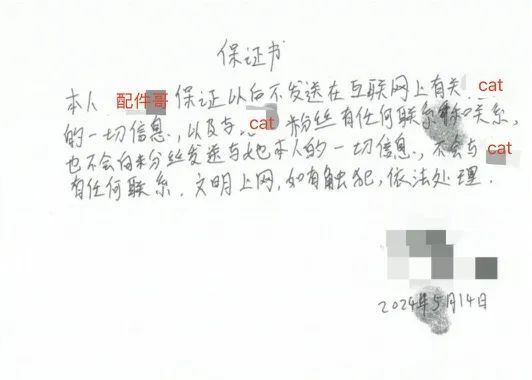 保证书
本人 配件哥 保证以后不发送在互联网上有关 cat
的一切信息，以及与 cat 粉丝有任何联系和关系，
也不会向粉丝发送与她本人的一切信息，不会与 cat
有任何联系。文明上网，如有触犯，依法处理。
2024年5月14日